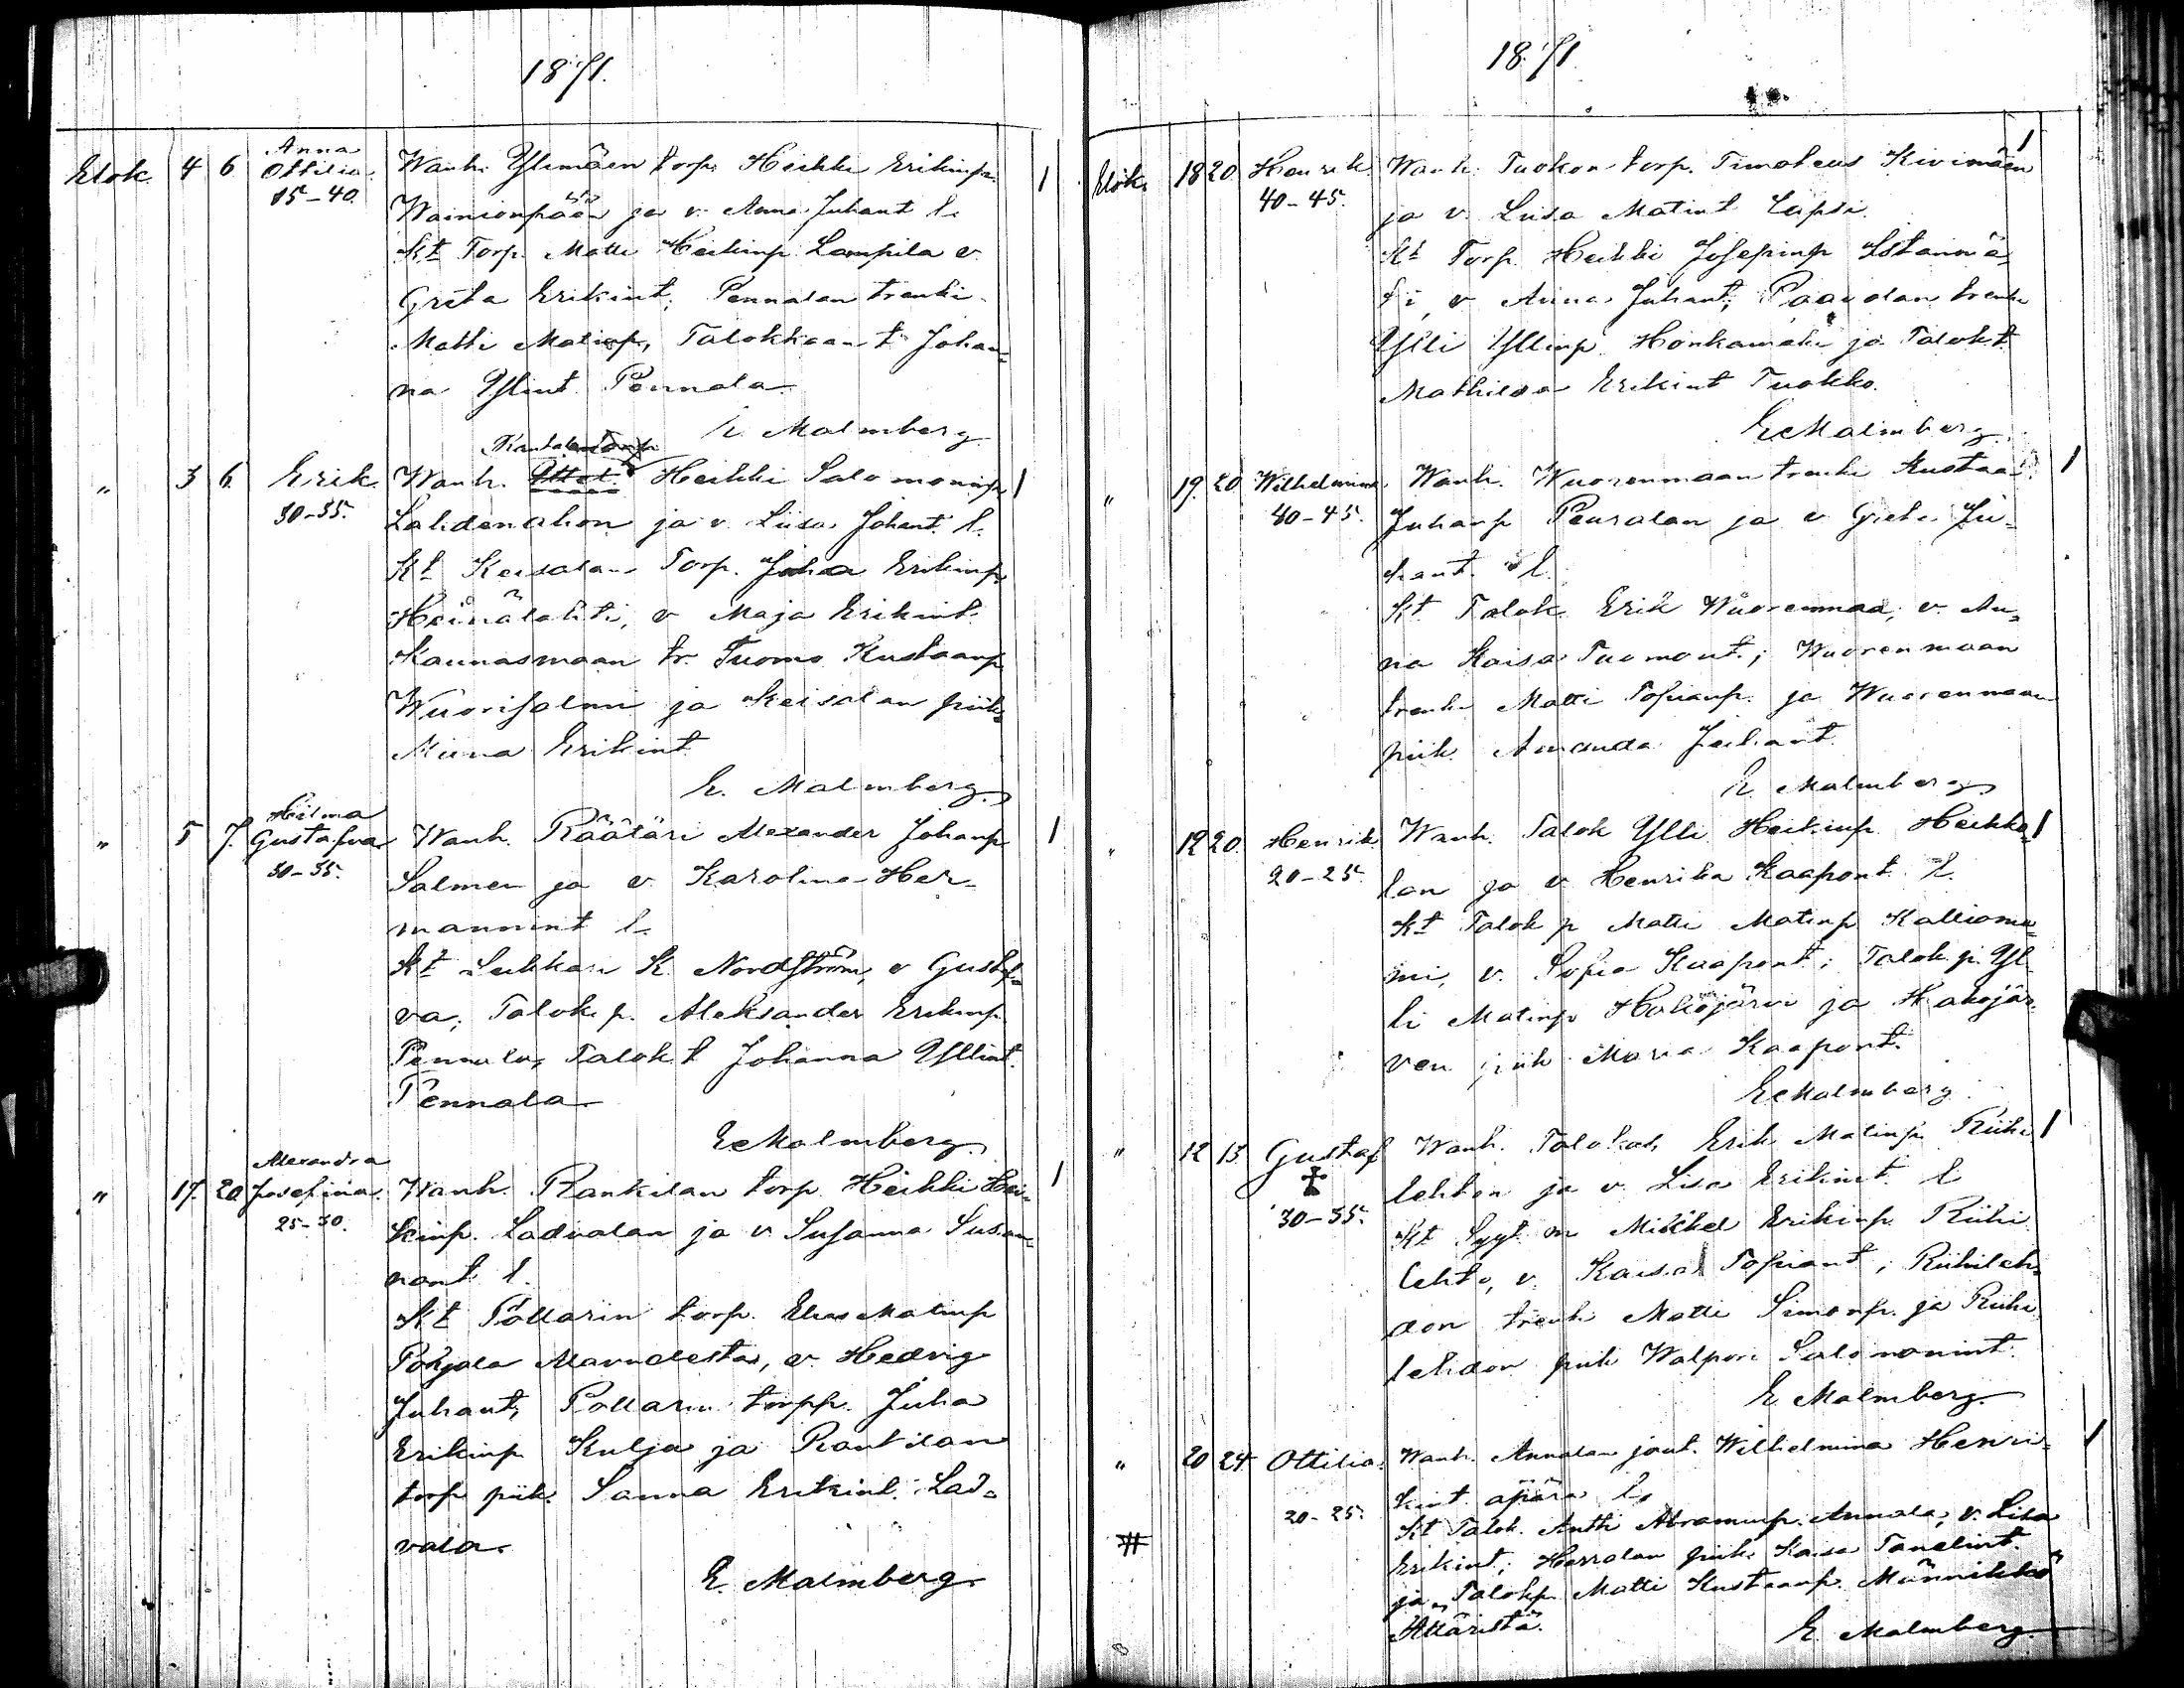 1871.
Elok. 4 6 Anna Ottilia. 35-40. Wanh. Ylimäen torp. Heikki Erikinp. 1
Wainionpään ja v. Anna Juhant l.
Kt Torp. Matti Heikinp. Lampila v.
Greta Erikint. Pennalan trenki
Matti Matinp, Talokkaan t. Johan=
na Yllint Pennala.
E. Malmberg
" 3 6. Erik 30-35. Wanh. Heikki Salomoninp 1
Lahdenahon ja v. Liisa Johant. l.
Kt Keisalan Torp. Juha Erikinp
Heinälahti, v Maja Erikint.
Kaunasmaan tr. Tuomo Kustaanp
Wuorisalmi ja Keisalan piik.
Miina Erikint
E. Malmberg.
" 5 7. Hilma Gustafva 30-35. Wanh. Räätäri Alexander Johanp 1
Salmen ja v. Karolina Her-
mannint l.
Kt Lukkari K. Nordström, v Gustaf=
va, Talok. p. Aleksander Erikinp.
Pennala, Talok. t Johanna Yllint.
Pennala
E Malmberg.
" 17. 20 Alexandra Josefina 25-30. Wanh. Rankilan torp. Heikki Hei= 1
kinp. Ladvalan ja v. Susanna Susan=
nant l.
Kt Pollarin torp. Elias Matinp
Pohjala Alavudesta, v. Hedvig
Juhant, Pollarin torpp. Juha
Erikinp Kulja ja Rantilan
torp piik. Sanna Erikint. Lad=
vala.
E. Malmberg.
1871
Elok. 18 20 Henrik 40-45. Wanh. Tuokon torp. Timoteus Kivimäen 1
ja v. Liisa Matint Lapsi.
Kt Torp. Heikki Josepinp
v Anna Juhant, Paavolan trenki
Ylli Yllinp. Honkamäki ja Talok t.
Mathilda Erikint Tuokko.
E Malmberg.
" 19. 20 Wilhelmina 40-45. Wanh. Wuorenmaan trenki Kustaa 1
Juhanp Peuralan ja v Greta Ju=
hant. l.
Kt Talok. Erik Wuorenmaa, v. An=
na Kaisa Tuomont.; Wuorenmaan
trenki Matti Tofianp. ja Wuorenmaan
piik. Amanda Juhant.
E. Malmberg
" 19 20. Henrik 20-25. Wanh. Talok Ylli Heikinp. Heikki= 1
lan ja v Henrika Kaapont l.
Kt Talok p Matti Matinp Kallionie=
mi, v. Sofia Kaapont; Talok. p. Yl=
li Matinp Hakojärvi ja Hakojär=
ven piik Maria Kaapont.
E Malmberg
" 12 13 Gustaf 30-35. Wanh. Talokas Erik Matinp Riihi= 1
lehdon ja v. Lisa Erikint l
Kt Syyt. m Mikkel Erikinp Riihi
lehto, v. Kaisa Tofiant, Riihileh=
don trenki Matti Simonp. ja Riihi
lehdon piik Walpori Salomonint.
E. Malmberg.
" 20 24 Ottilia. 20-25. Wanh. Annalan jout. Wilhelmina Henri= 1
kint. äpärä l.
Kt Talok. Antti Abraminp. Annala, v. Lisa
Erikint; Herralan piik. Kaisa Tanelint.
ja Talokp Matti Kustaanp. Männikkö
Ätäristä.
E. Malmberg.